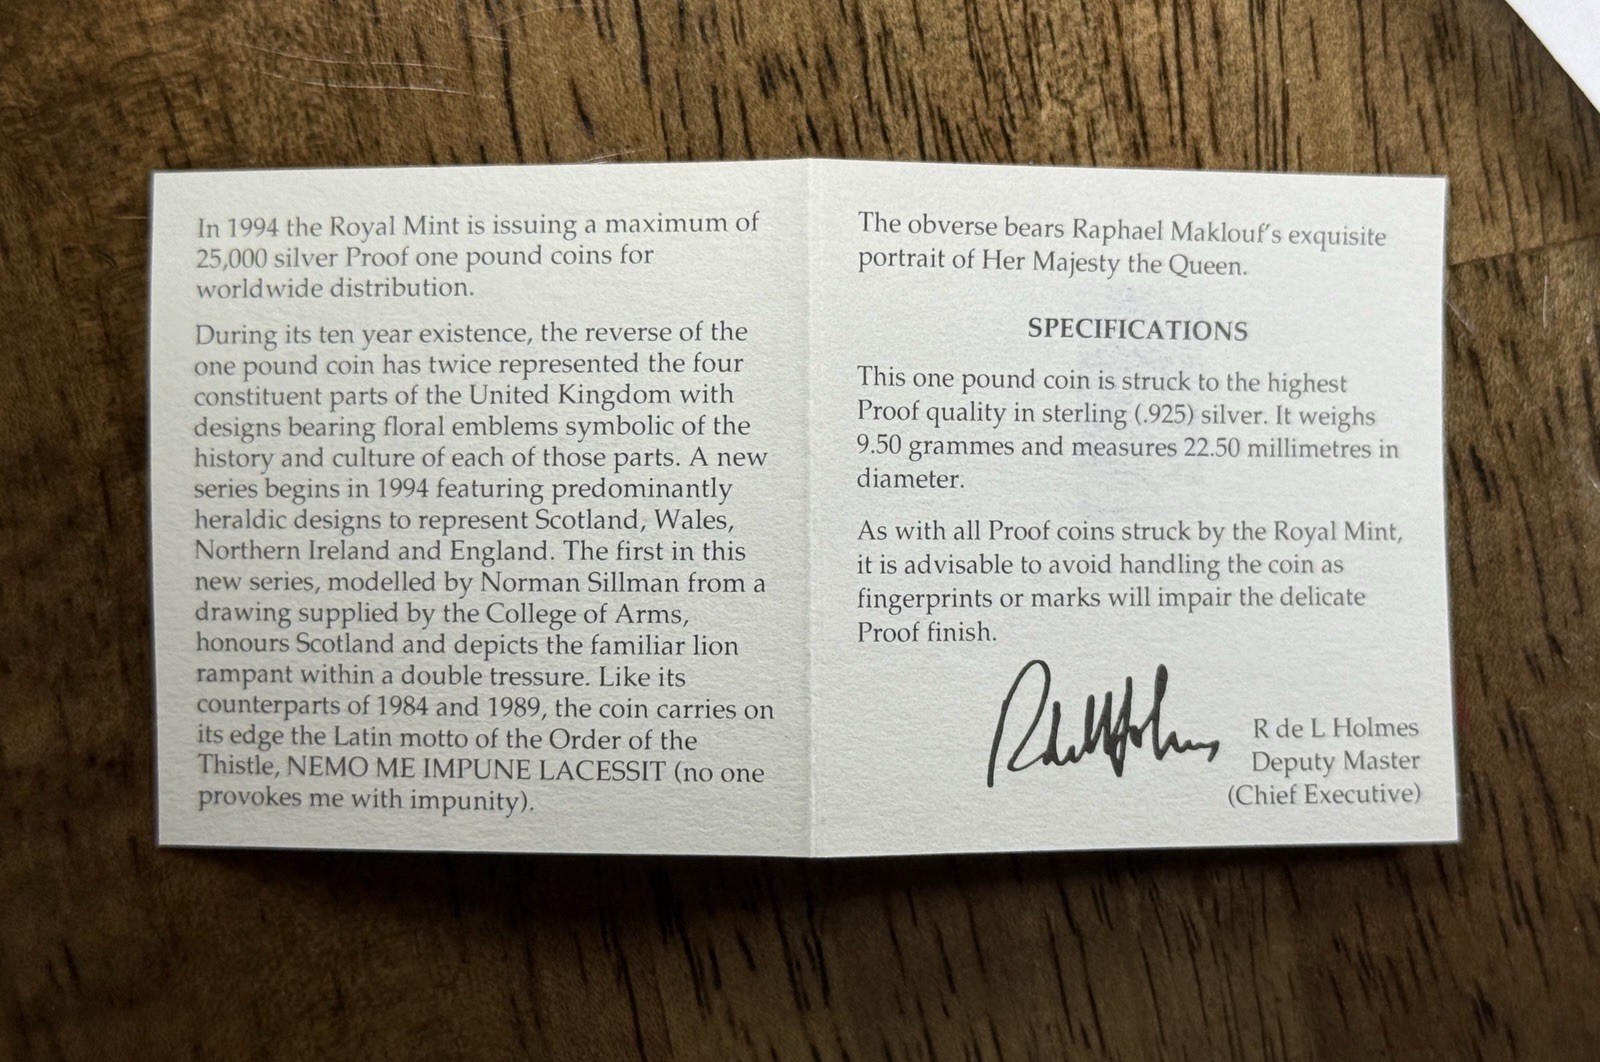 In 1994 the Royal Mint is issuing a maximum of
25,000 silver Proof one pound coins for
worldwide distribution.
During its ten year existence, the reverse of the
one pound coin has twice represented the four
constituent parts of the United Kingdom with
designs bearing floral emblems symbolic of the
history and culture of each of those parts. A new
series begins in 1994 featuring predominantly
heraldic designs to represent Scotland, Wales,
Northern Ireland and England. The first in this
new series, modelled by Norman Sillman from a
drawing supplied by the College of Arms,
honours Scotland and depicts the familiar lion
rampant within a double tressure. Like its
counterparts of 1984 and 1989, the coin carries on
its edge the Latin motto of the Order of the
Thistle, NEMO ME IMPUNE LACESSIT (no one
provokes me with impunity).
The obverse bears Raphael Maklouf's exquisite
portrait of Her Majesty the Queen.
SPECIFICATIONS
This one pound coin is struck to the highest
Proof quality in sterling (.925) silver. It weighs
9.50 grammes and measures 22.50 millimetres in
diameter.
As with all Proof coins struck by the Royal Mint,
it is advisable to avoid handling the coin as
fingerprints or marks will impair the delicate
Proof finish.
R de L Holmes
R de L Holmes
Deputy Master
(Chief Executive)